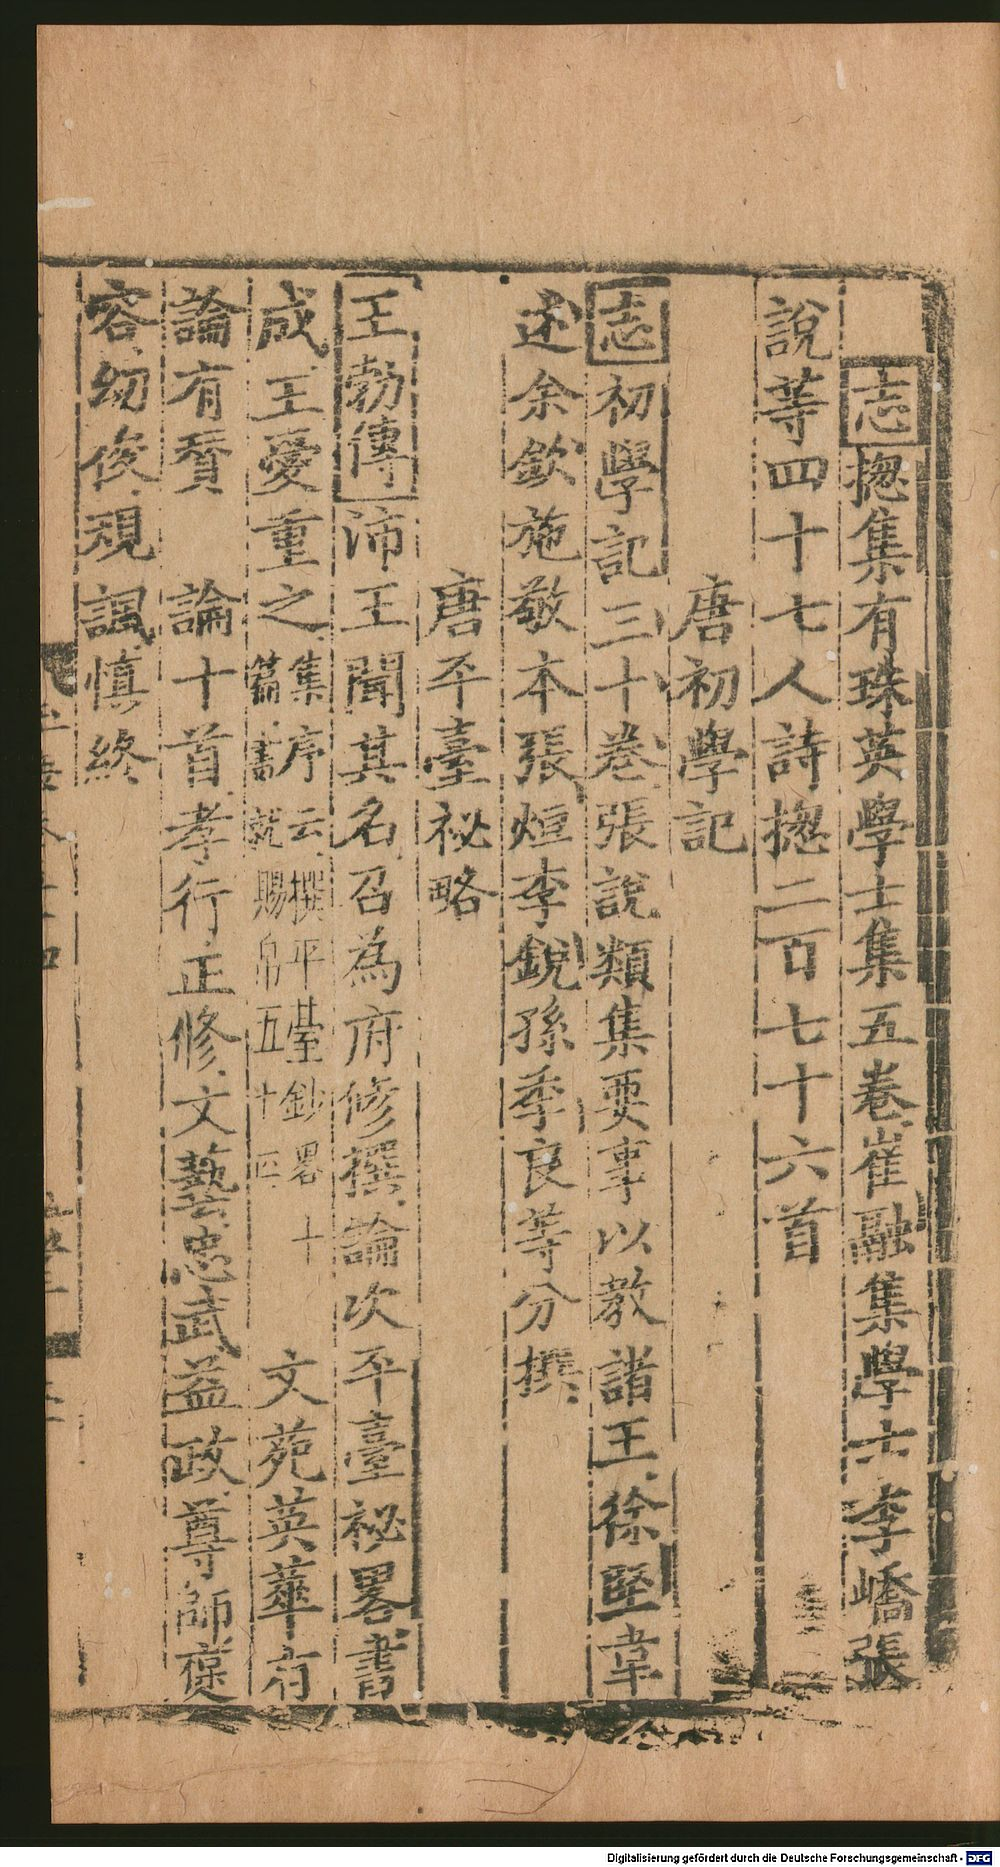 志揔集有珠英學士集五卷崔融集學士李嶠張
說等四十七人詩揔二百七十六首
唐初學記
志初學記三十卷張說類集要事以教諸王徐堅韋
述余欽施敬本張烜李銳孫季良等分撰
唐平臺祕略
王勃傳沛王聞其名召為府修撰論次平臺祕畧書
成王愛重之集序云撰平臺鈔畧十篇書就賜帛五十匹文苑英華有
論有贊 論十首孝行正修文藝忠武益政尊師褒
容幼俊規諷慎終
Digitalisierung gefördert durch die Deutsche Forschungsgemeinschaft - DFG